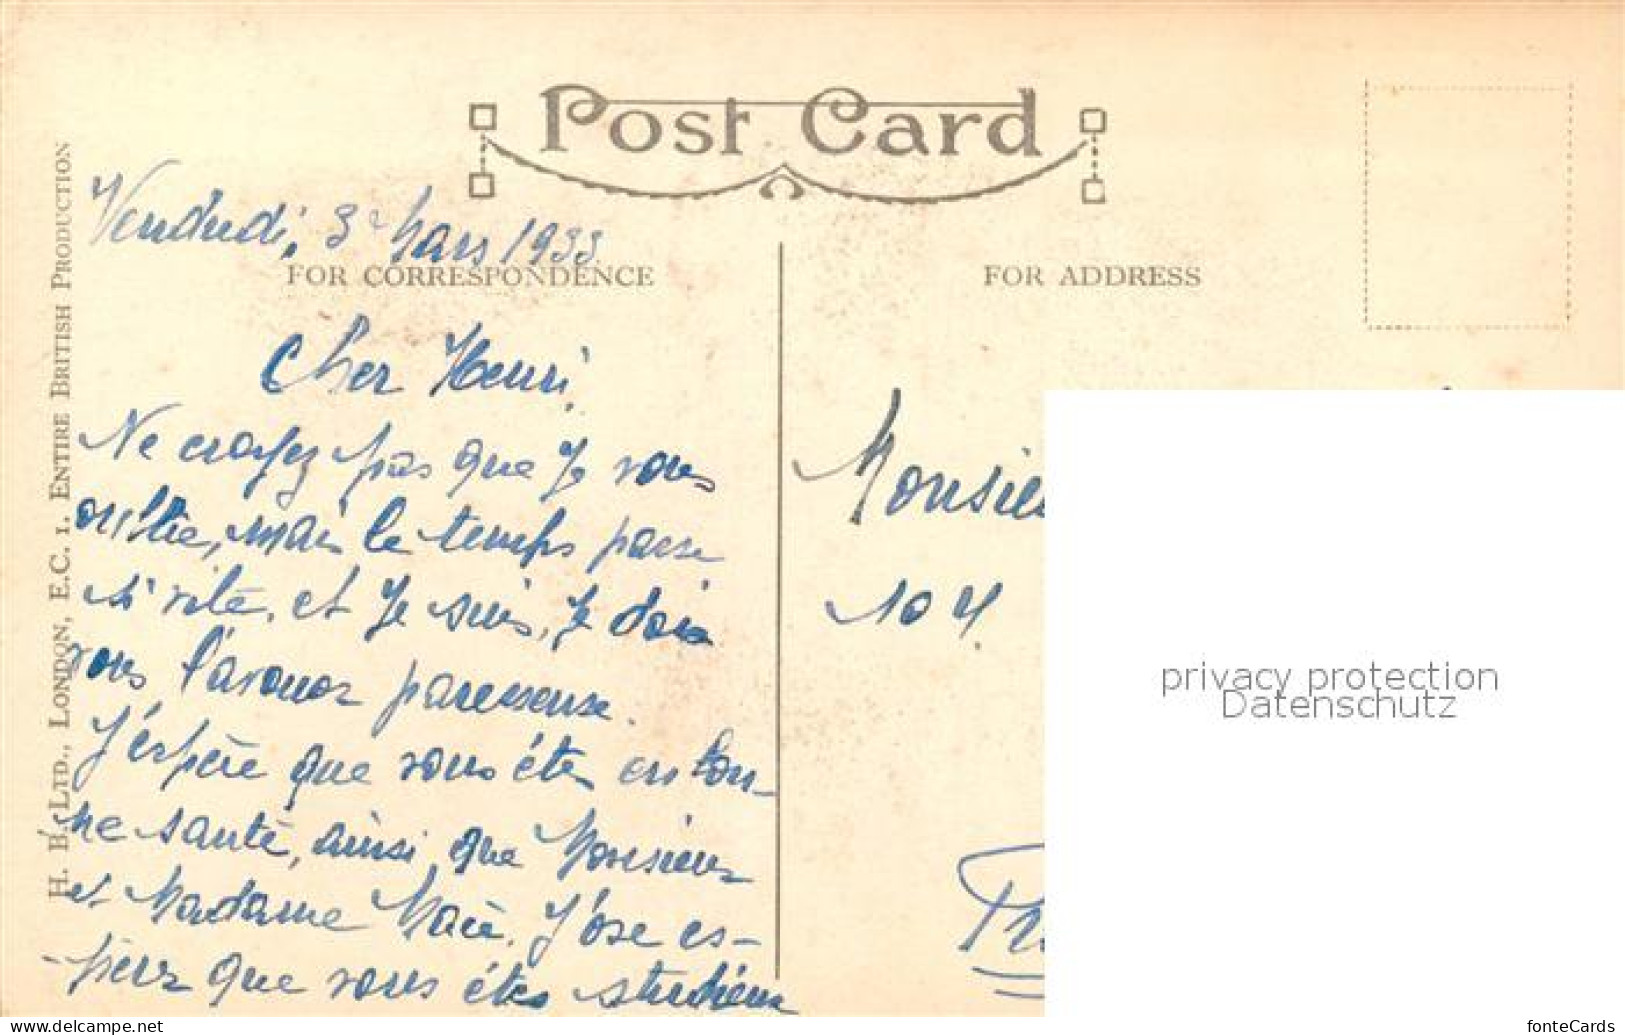 Post Card
FOR CORRESPONDENCE
FOR ADDRESS
H. B. LTD., LONDON, E.C. 1. ENTIRE BRITISH PRODUCTION
Vendredi, 3 Mars 1933
Cher Henri,
Ne croyez pas que je vous
oublie, mais le temps passe
si vite, et je suis, je dois
vous l'avouer paresseuse.
J'espère que vous êtes en bon-
ne santé, ainsi que Monsieur
et Madame J'ose es-
pérer que vous êtes studieux
Monsieu
104
privacy protection
Datenschutz
fonteCards
www.delcampe.net